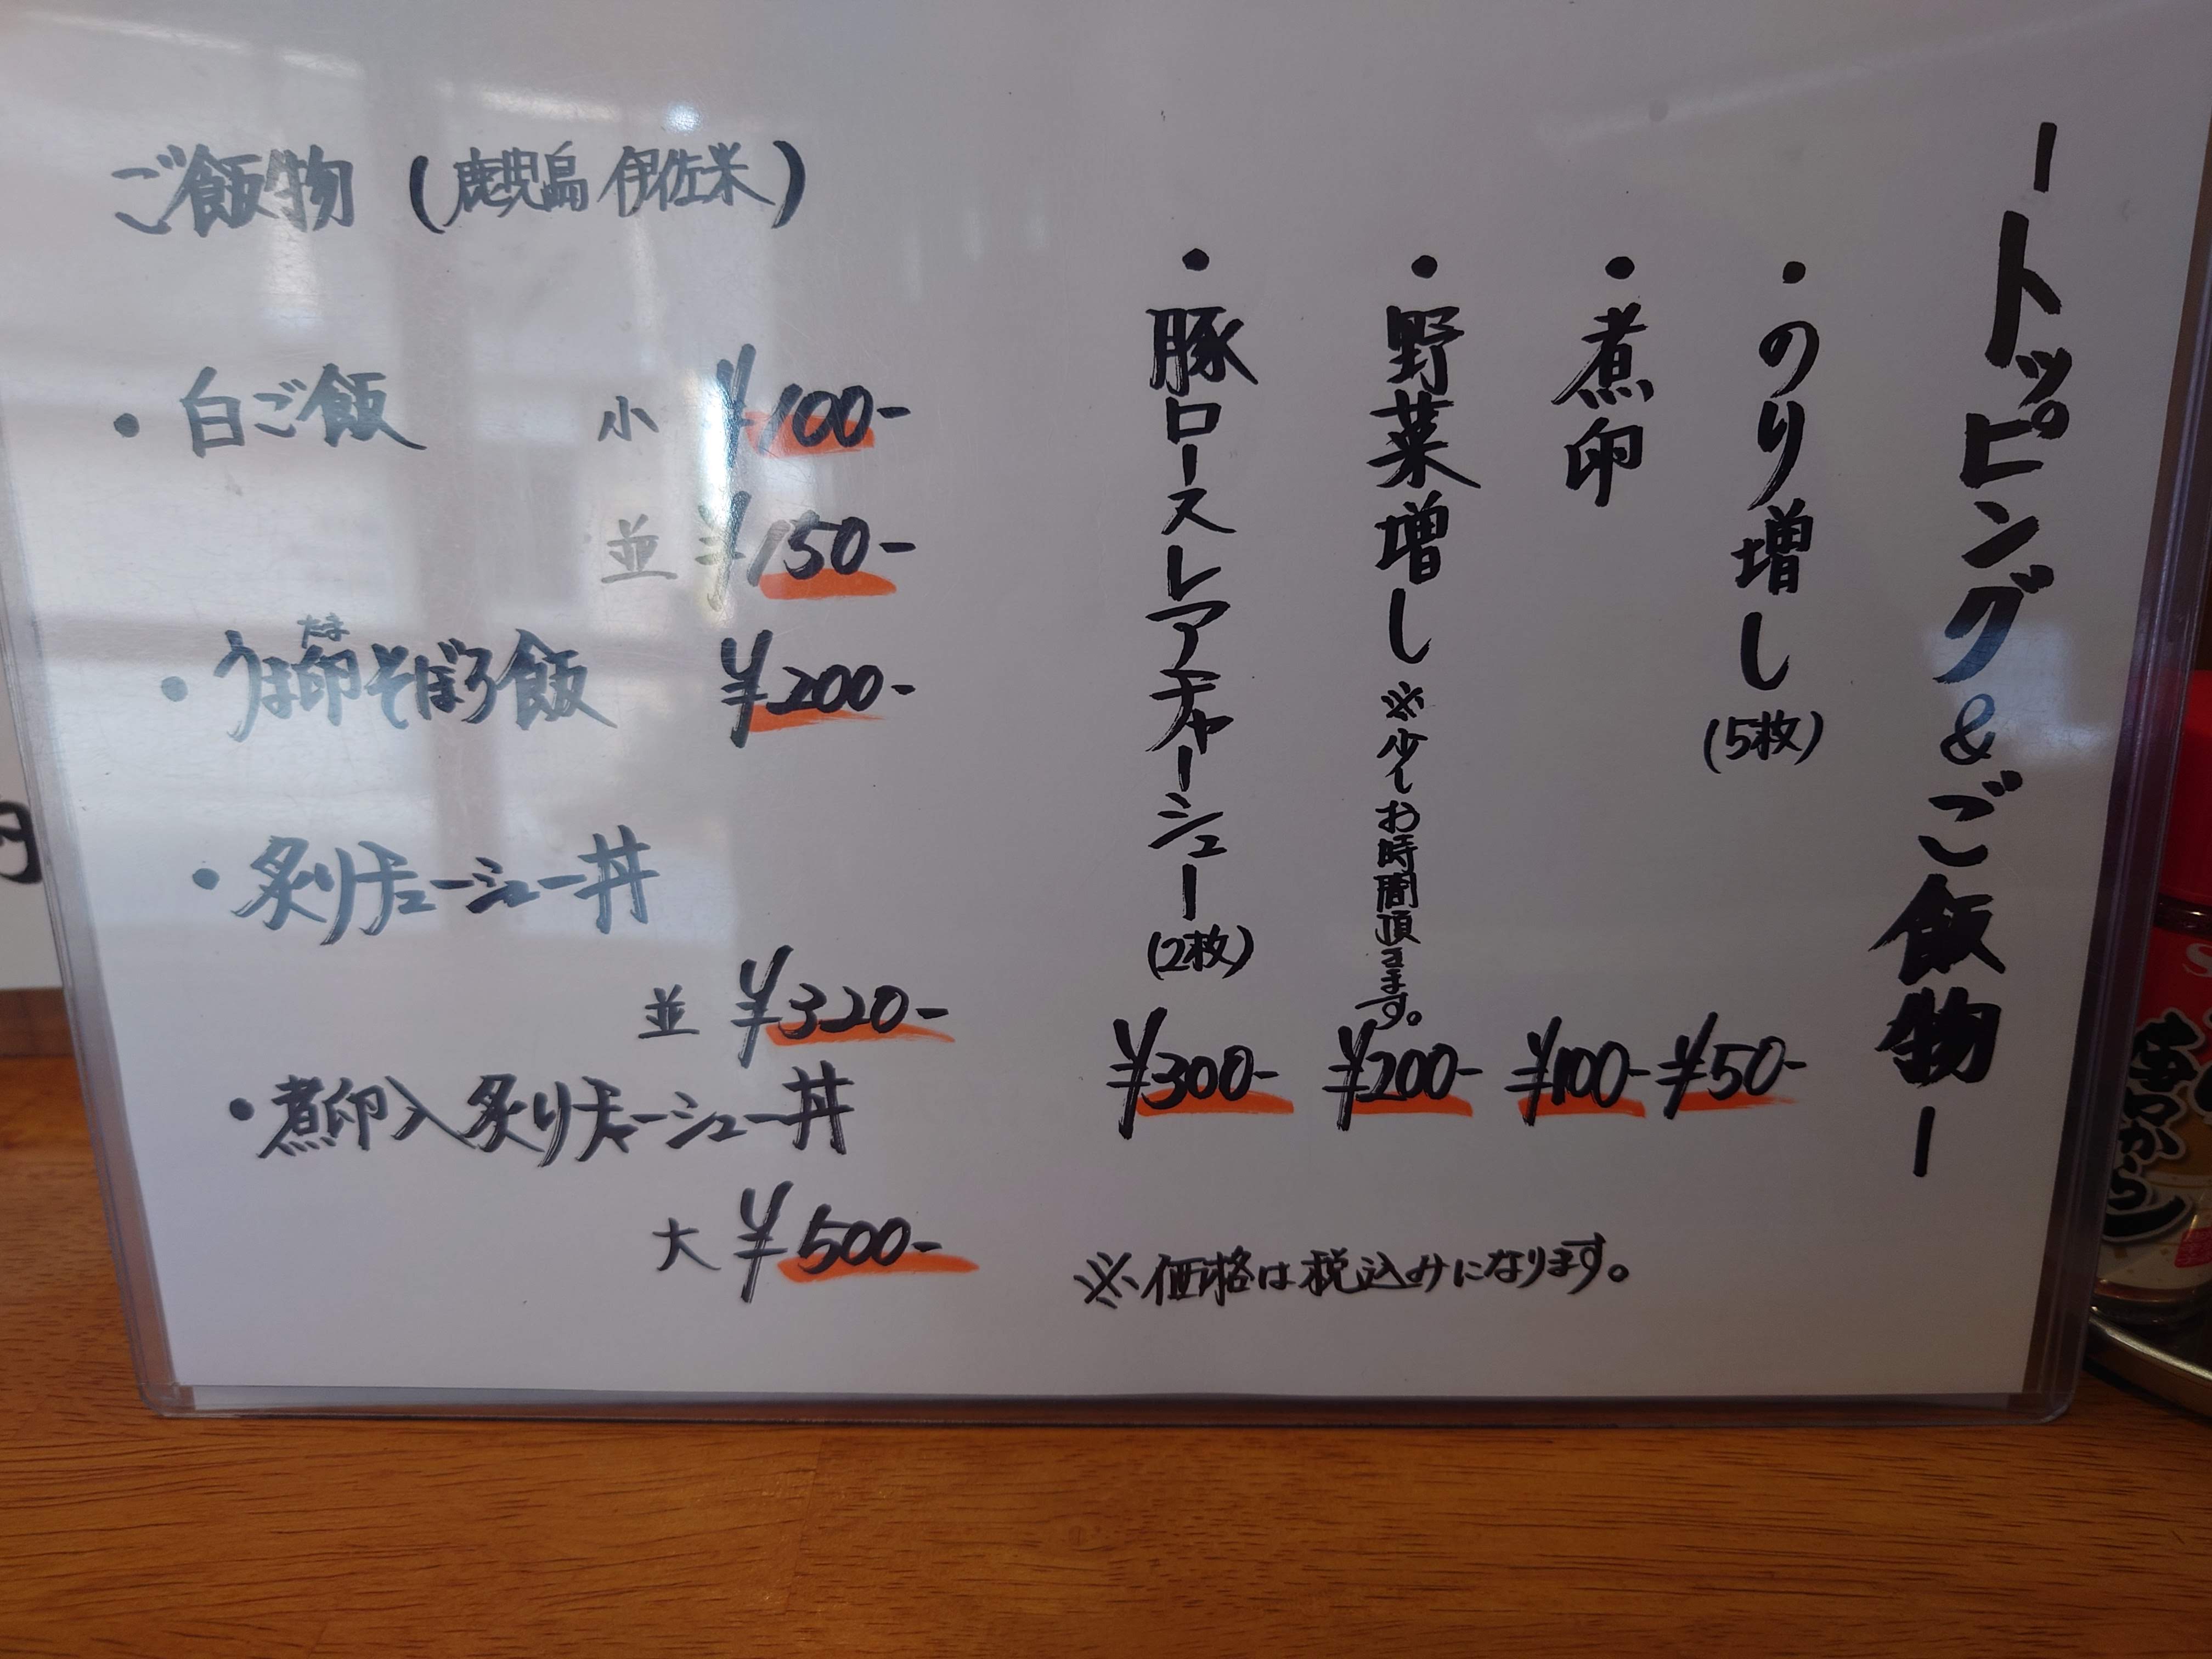 ートッピング&ご飯物ー
・のり増し(5枚) ¥50-
・煮卵 ¥100-
・野菜増し ※少しお時間頂きます。 ¥200-
・豚ロースレアチャーシュー(2枚) ¥300-
※価格は税込みになります。
ご飯物(鹿児島 伊佐米)
・白ご飯 小 ¥100-
並 ¥150-
たま
・うま卵そぼろ飯 ¥200-
・炙りチャーシュー丼
並 ¥320-
・煮卵入炙りチャーシュー丼
大 ¥500-